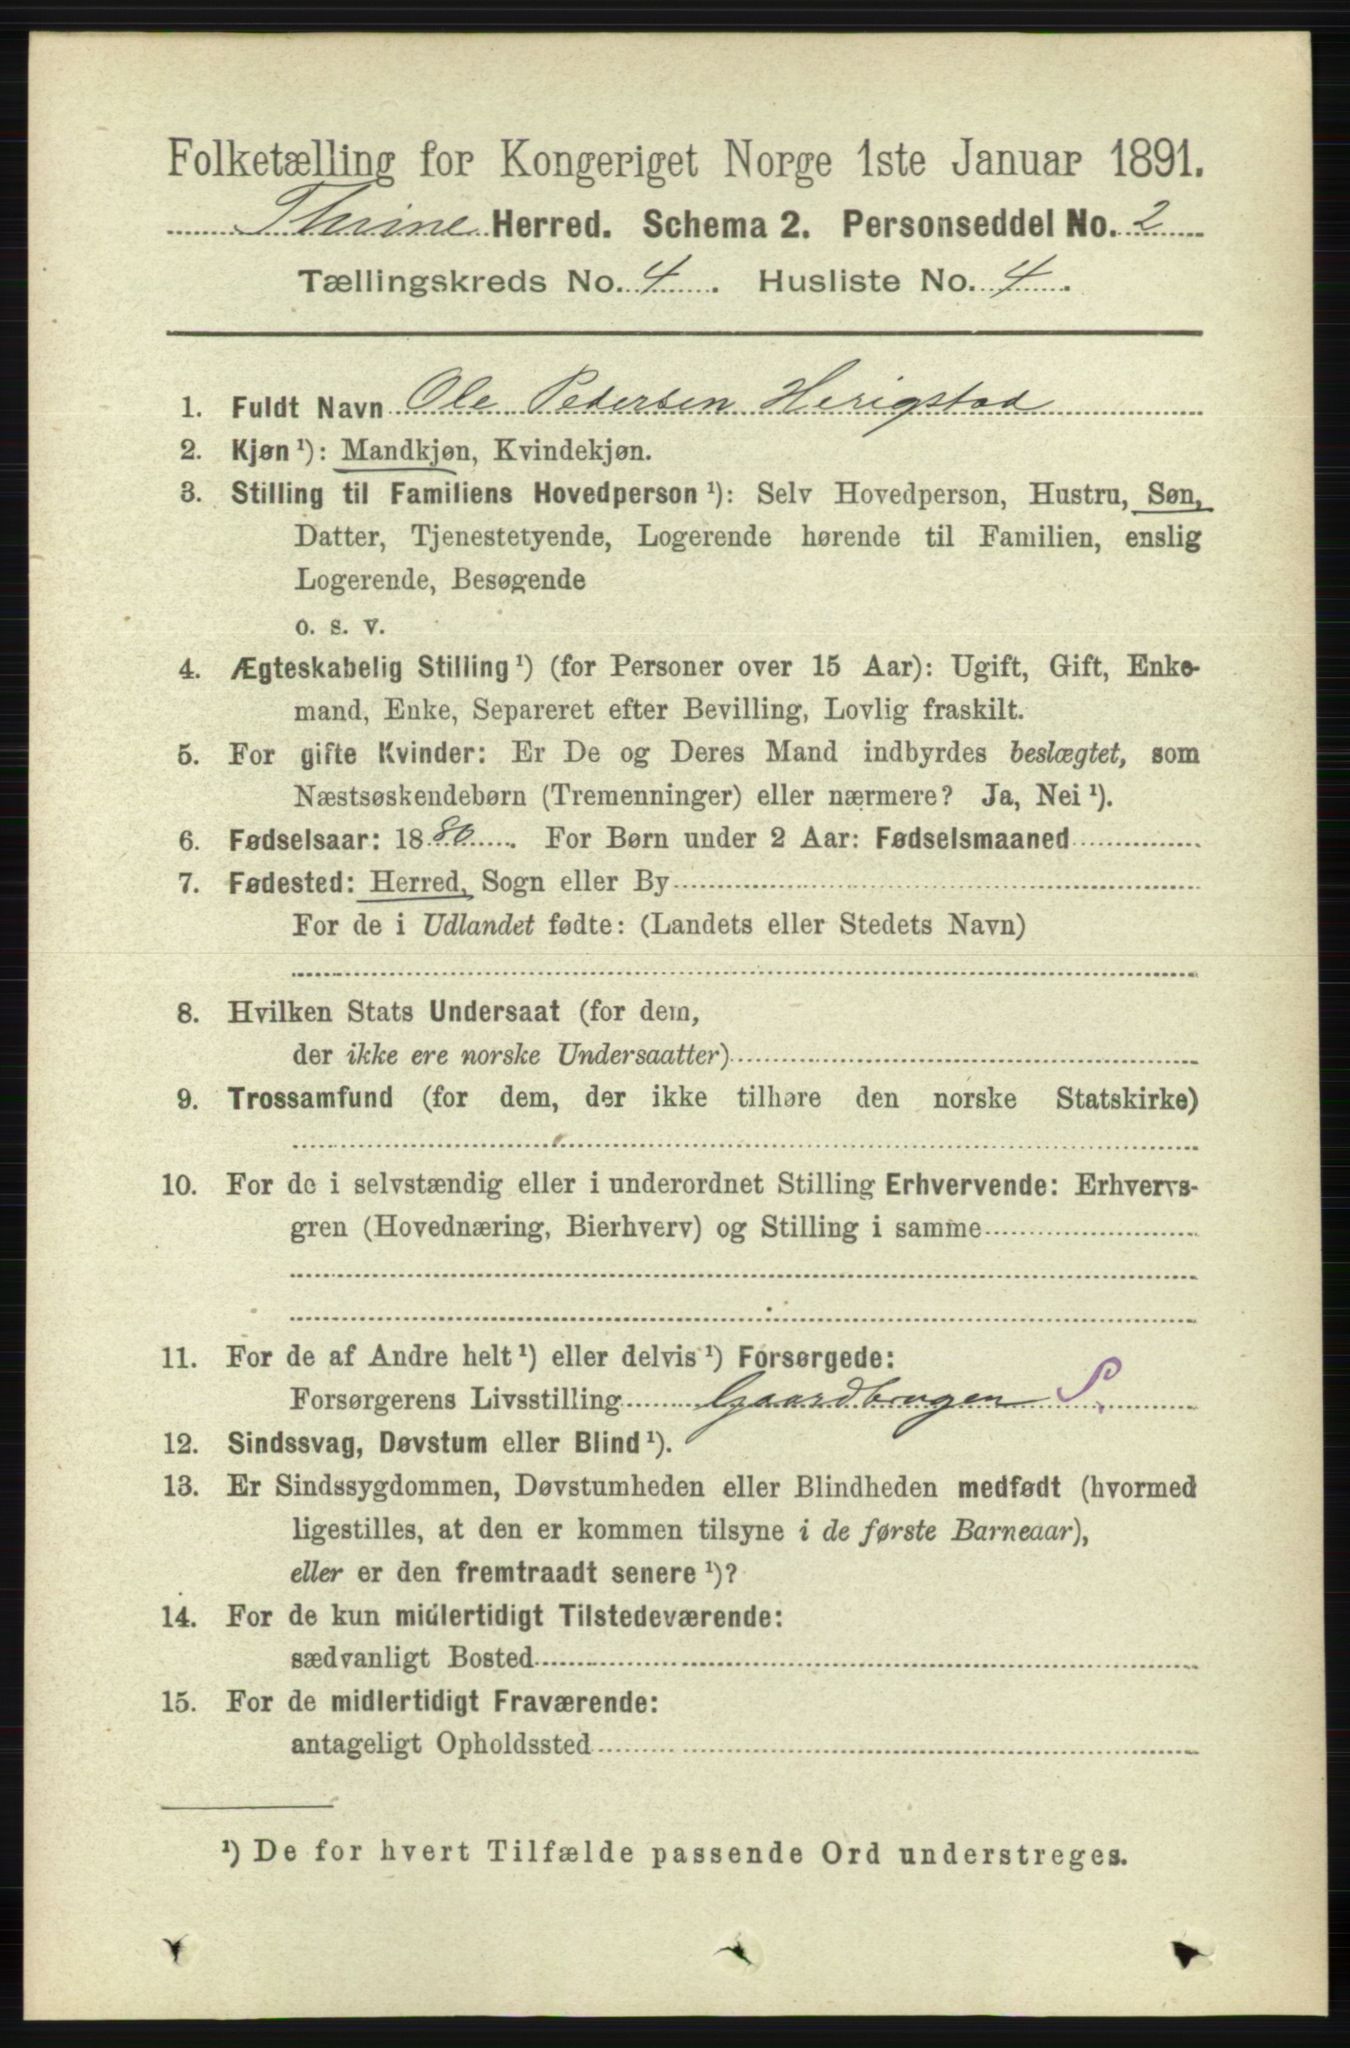 Folketælling for Kongeriget Norge 1ste Januar 1891.
Thime Herred. Schema 2. Personseddel No. 2
Tællingskreds No. 4. Husliste No. 4.
1. Fuldt Navn Ole Pedersen Herigstad
2. Kjøn ¹): Mandkjøn, Kvindekjøn.
3. Stilling til Familiens Hovedperson ¹): Selv Hovedperson, Hustru, Søn,
Datter, Tjenestetyende, Logerende hørende til Familien, enslig
Logerende, Besøgende
o. s. v.
4. Ægteskabelig Stilling ¹) (for Personer over 15 Aar): Ugift, Gift, Enke-
mand, Enke, Separeret efter Bevilling, Lovlig fraskilt.
5. For gifte Kvinder: Er De og Deres Mand indbyrdes beslægtet, som
Næstsøskendebørn (Tremenninger) eller nærmere? Ja, Nei ¹).
6. Fødselsaar: 1880. For Børn under 2 Aar: Fødselsmaaned
7. Fødested: Herred, Sogn eller By
For de i Udlandet fødte: (Landets eller Stedets Navn)
8. Hvilken Stats Undersaat (for dem,
der ikke ere norske Undersaatter)
9. Trossamfund (for dem, der ikke tilhøre den norske Statskirke)
10. For de i selvstændig eller i underordnet Stilling Erhvervende: Erhvervs-
gren (Hovednæring, Bierhverv) og Stilling i samme
11. For de af Andre helt ¹) eller delvis ¹) Forsørgede:
Forsørgerens Livsstilling Gaardbrugen S.
12. Sindssvag, Døvstum eller Blind ¹).
13. Er Sindssygdommen, Døvstumheden eller Blindheden medfødt (hvormed
ligestilles, at den er kommen tilsyne i de første Barneaar),
eller er den fremtraadt senere ¹)?
14. For de kun midlertidigt Tilstedeværende:
sædvanligt Bosted
15. For de midlertidigt Fraværende:
antageligt Opholdssted
¹) De for hvert Tilfælde passende Ord understreges.